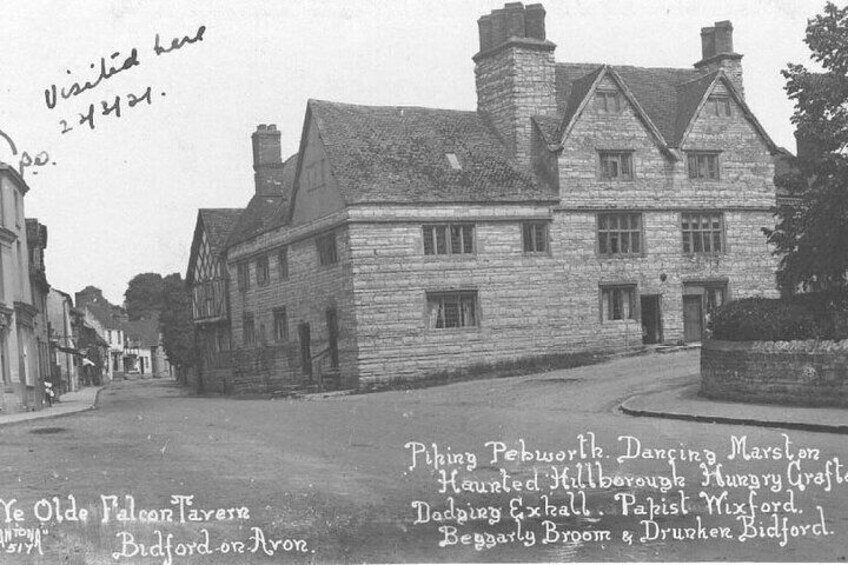 Visited here
22/3/21.
Piping Pebworth. Dancing Marston
Haunted Hillborough Hungry Grafto
Dodging Exhall. Papist Wixford.
Beggarly Broom & Drunken Bidford.
Ye Olde Falcon Tavern
Bidford-on-Avon.